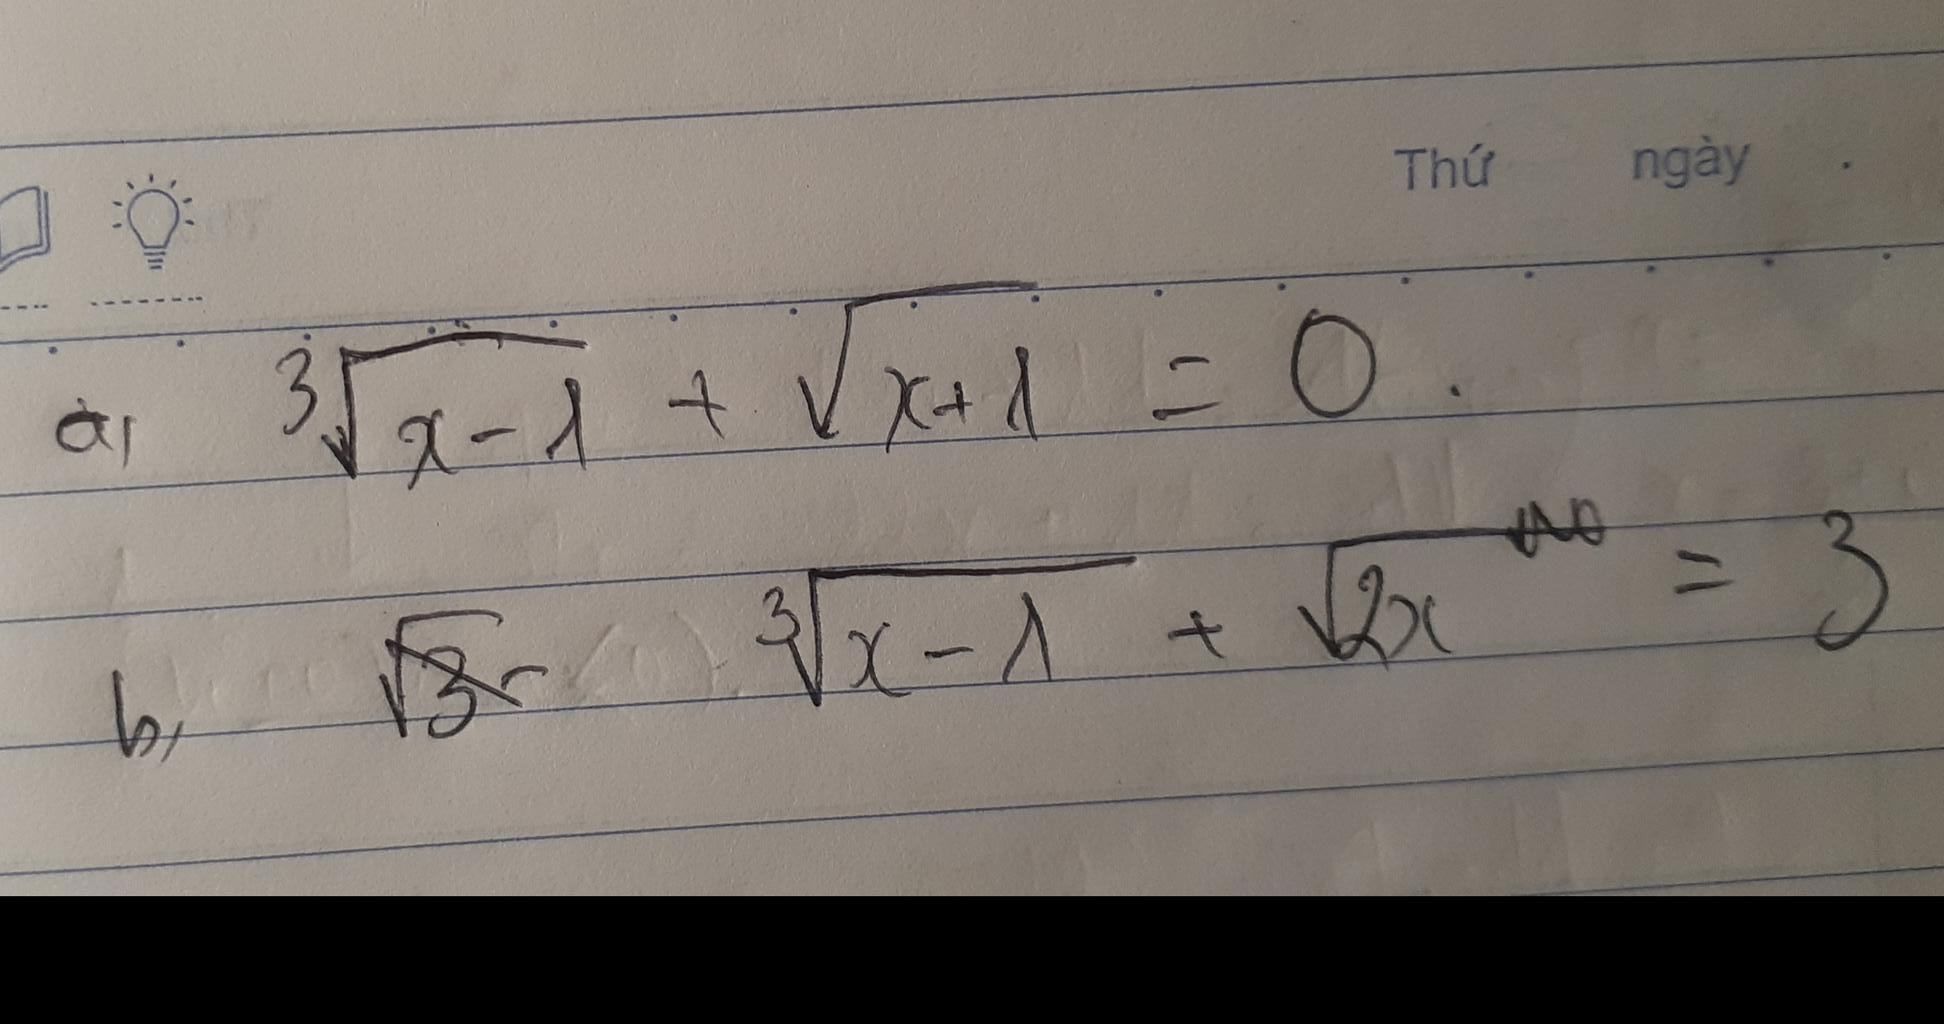 Thứ ngày .
a, ∛(x-1) + √(x+1) = 0.
b, √3- ∛(x-1) + √(2x) = 3